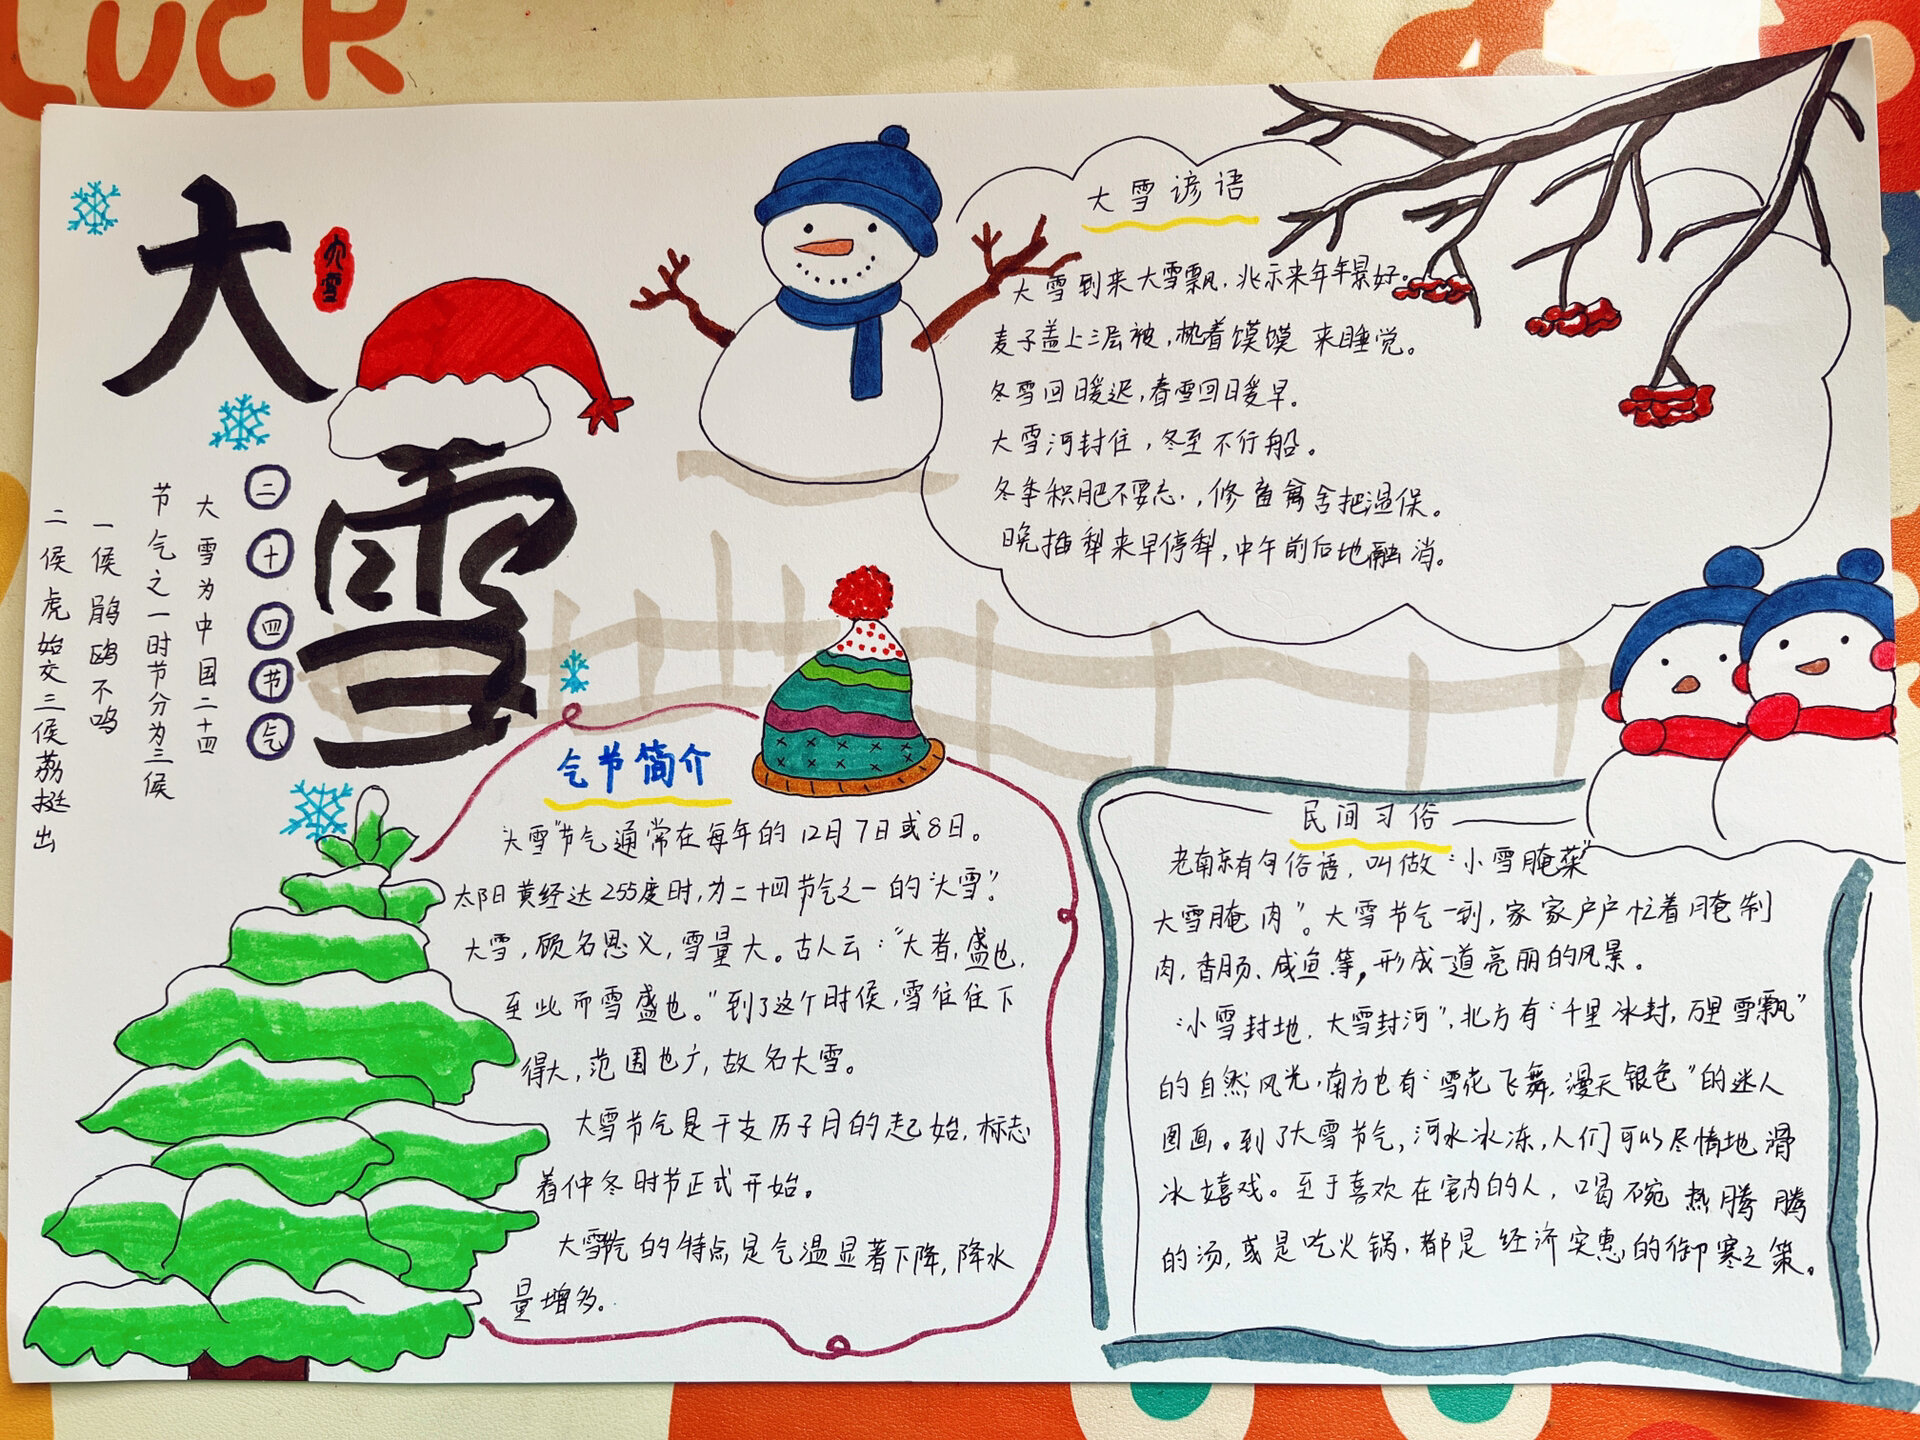 LUCK
大雪
大雪
二十四节气
大雪为中国二十四
节气之一时节分为三候
一候鹃鸥不鸣
二候虎始交三候荔挺出
大雪谚语
大雪到来大雪飘，兆示来年年景好。
麦子盖上三层被，枕着馍馍来睡觉。
冬雪回暖迟，春雪回暖早。
大雪河封住，冬至不行船。
冬季积肥不要忘，修畜禽舍把温保。
晚插犁来早停犁，中午前后地融消。
气节简介
"大雪"节气通常在每年的12月7日或8日。
太阳黄经达255度时，为二十四节气之一的"大雪"。
大雪，顾名思义，雪量大。古人云："大者，盛也，
至此而雪盛也。"到了这个时候，雪往往下
得大，范围也广，故名大雪。
大雪节气是干支历子月的起始，标志
着仲冬时节正式开始。
大雪节气的特点是气温显著下降，降水
量增多。
民间习俗
老南京有句俗语，叫做"小雪腌菜"
大雪腌肉"。大雪节气一到，家家户户忙着腌制
肉，香肠、咸鱼等，形成一道亮丽的风景。
"小雪封地，大雪封河"，北方有"千里冰封，万里雪飘"
的自然风光，南方也有"雪花飞舞，漫天银色"的迷人
图画。到了大雪节气，河水冰冻，人们可以尽情地滑
冰嬉戏。至于喜欢在室内的人，喝碗热腾腾
的汤，或是吃火锅，都是经济实惠的御寒之策。